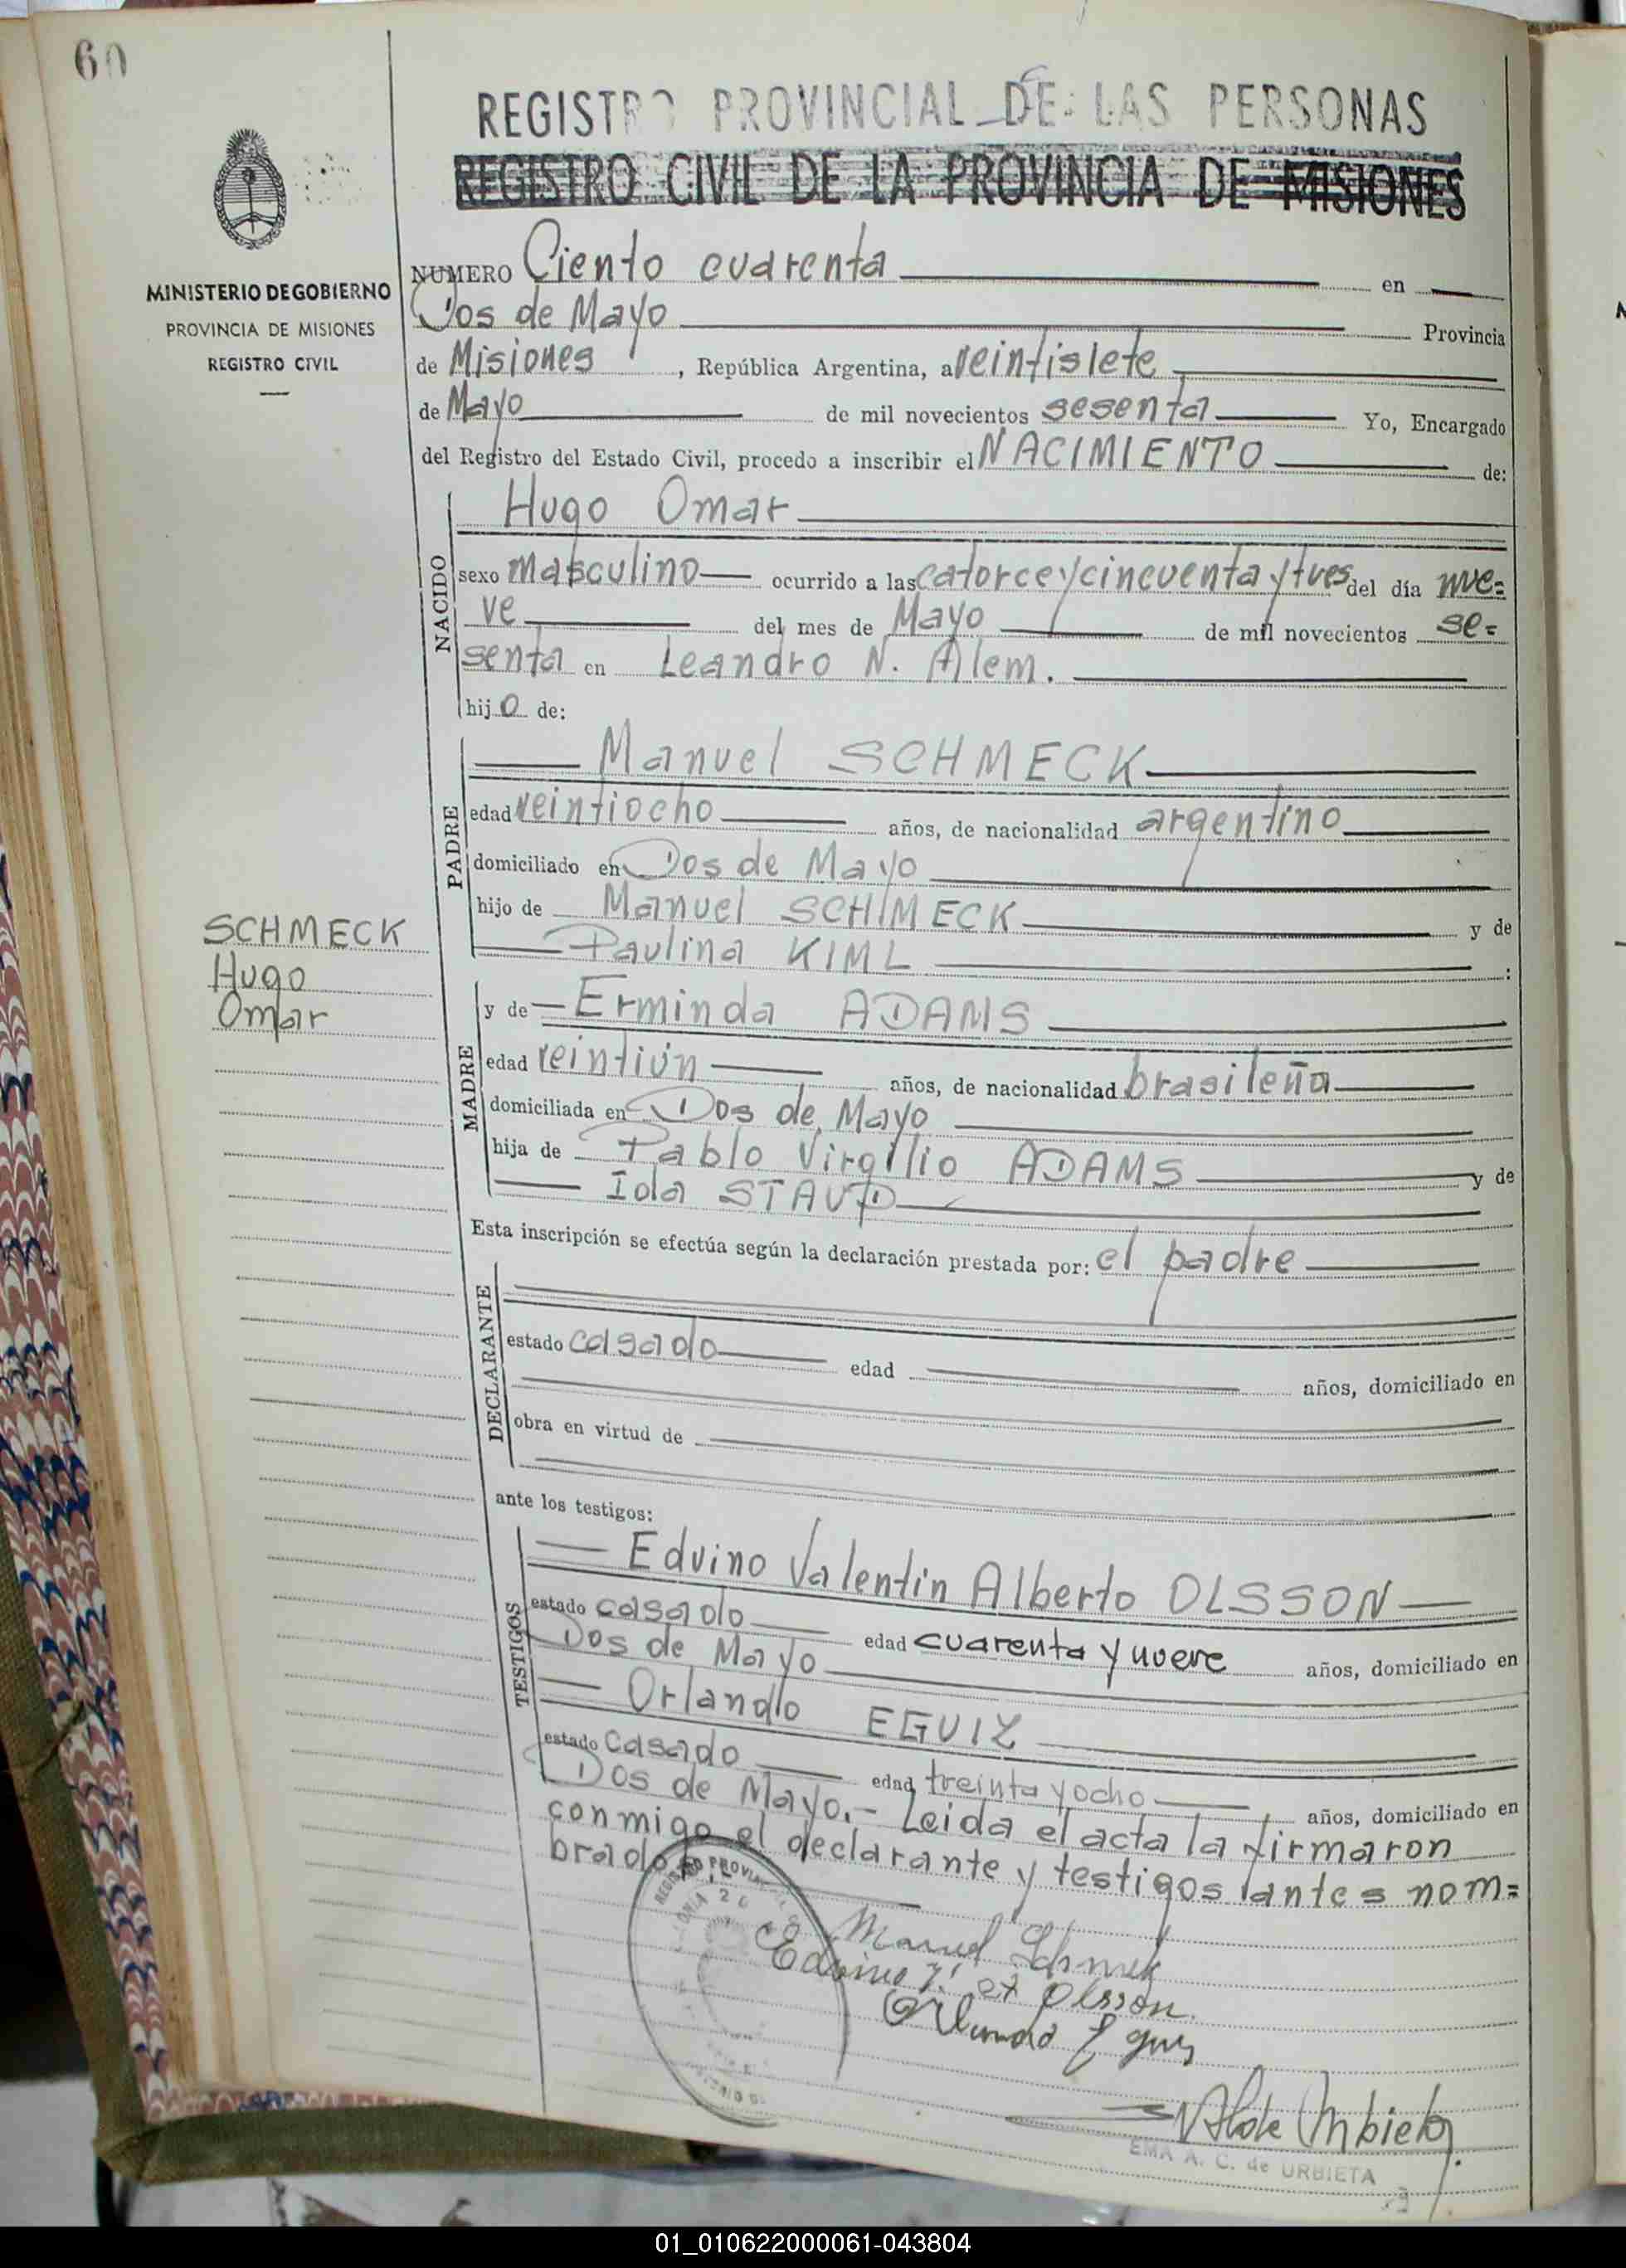 60
REGISTRO PROVINCIAL DE LAS PERSONAS
REGISTRO CIVIL DE LA PROVINCIA DE MISIONES
MINISTERIO DE GOBIERNO
PROVINCIA DE MISIONES
REGISTRO CIVIL
NUMERO Ciento cuarenta en
Dos de Mayo Provincia
de Misiones, República Argentina, a veintisiete
de Mayo de mil novecientos sesenta Yo, Encargado
del Registro del Estado Civil, procedo a inscribir el NACIMIENTO de:
NACIDO
Hugo Omar
sexo masculino ocurrido a las catorce y cincuenta y tres del día nue=
ve del mes de Mayo de mil novecientos se=
senta en Leandro N. Alem.
hijo de:
PADRE
Manuel SCHMECK
edad veintiocho años, de nacionalidad argentino
domiciliado en Dos de Mayo
hijo de Manuel SCHMECK y de
Paulina KIML :
SCHMECK
Hugo
Omar
MADRE
y de Erminda ADAMS
edad veintiún años, de nacionalidad brasileña
domiciliada en Dos de Mayo
hija de Pablo Virgilio ADAMS y de
Ida
Esta inscripción se efectúa según la declaración prestada por: el padre
DECLARANTE
estado casado edad años, domiciliado en
obra en virtud de
ante los testigos:
TESTIGOS
Edvino Valentin Alberto OLSSON
estado casado edad cuarenta y nueve años, domiciliado en
Dos de Mayo
Orlando EGUIZ
estado casado edad treinta y ocho años, domiciliado en
Dos de Mayo.- Leida el acta la firmaron
conmigo el declarante y testigos antes nom=
brados.
Manuel Schmeck
Edvino Olsson
Orlando Eguiz
Urbieta
EMA A. C. de URBIETA
01_010622000061-043804